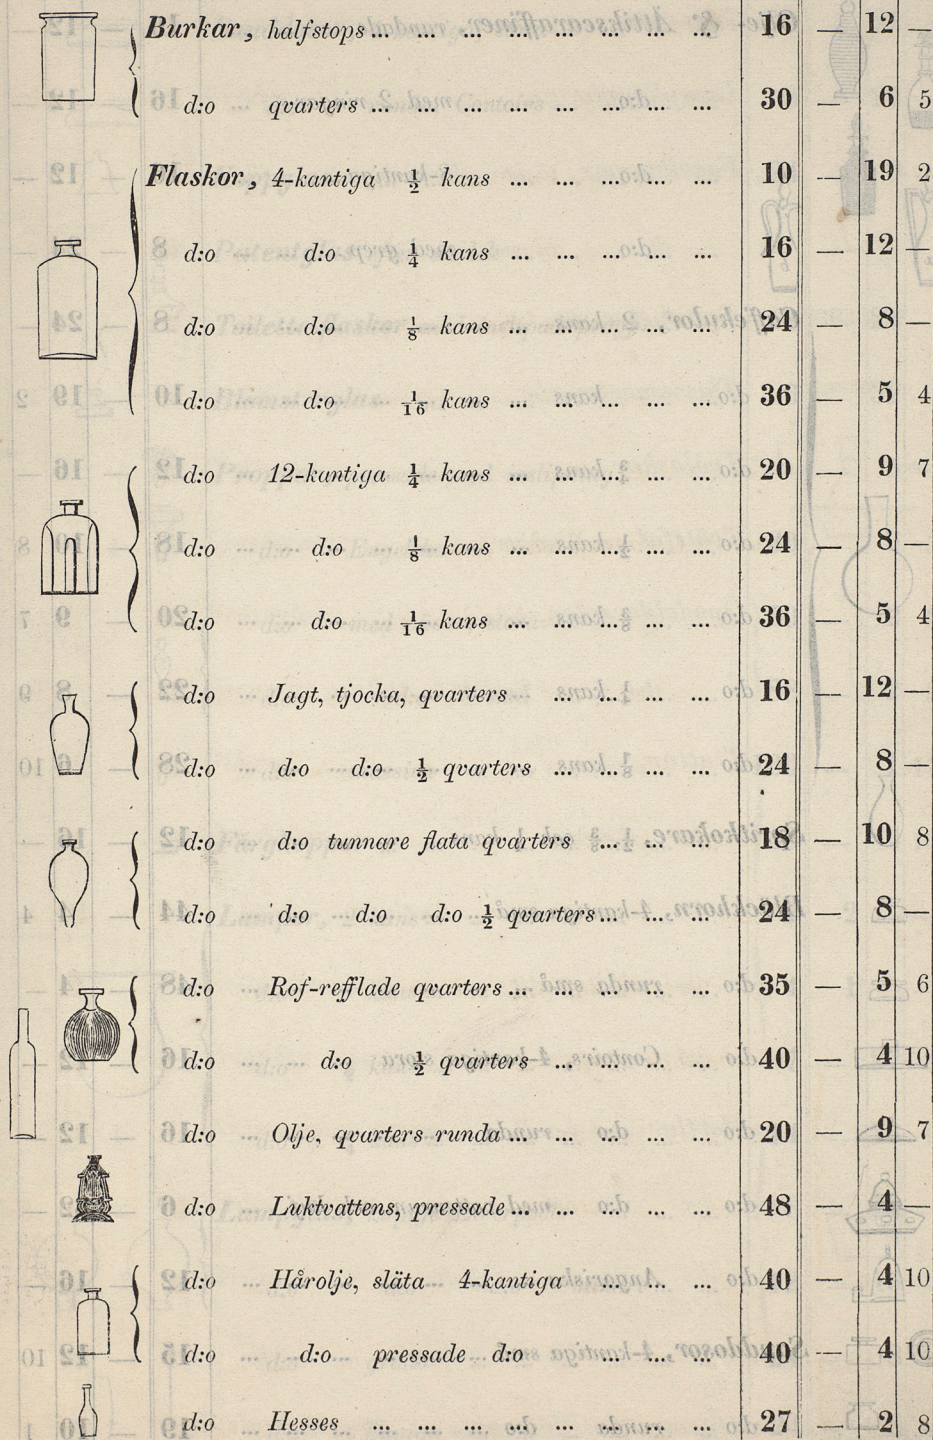 Burkar, halfstops ... ... ... ... ... ... ... ... 16 — 12 —
d:o qvarters ... ... ... ... ... ... ... ... 30 — 6 5
Flaskor, 4-kantiga ½ kans ... ... ... ... ... 10 — 19 2
d:o d:o ¼ kans ... ... ... ... ... 16 — 12 —
d:o d:o ⅛ kans ... ... ... ... ... 24 — 8 —
d:o d:o 1/16 kans ... ... ... ... ... 36 — 5 4
d:o 12-kantiga ¼ kans ... ... ... ... ... 20 — 9 7
d:o d:o ⅛ kans ... ... ... ... ... 24 — 8 —
d:o d:o 1/16 kans ... ... ... ... ... 36 — 5 4
d:o Jagt, tjocka, qvarters ... ... ... ... 16 — 12 —
d:o d:o d:o ½ qvarters ... ... ... ... 24 — 8 —
d:o d:o tunnare flata qvarters ... ... ... 18 — 10 8
d:o d:o d:o d:o ½ qvarters ... ... ... 24 — 8 —
d:o Rof-refflade qvarters ... ... ... ... ... 35 — 5 6
d:o d:o ½ qvarters ... ... ... ... 40 — 4 10
d:o Olje, qvarters runda ... ... ... ... ... 20 — 9 7
d:o Luktvattens, pressade ... ... ... ... ... 48 — 4 —
d:o Hårolje, släta 4-kantiga ... ... ... 40 — 4 10
d:o d:o pressade d:o ... ... ... 40 — 4 10
d:o Hesses ... ... ... ... ... ... ... ... 27 — 2 8